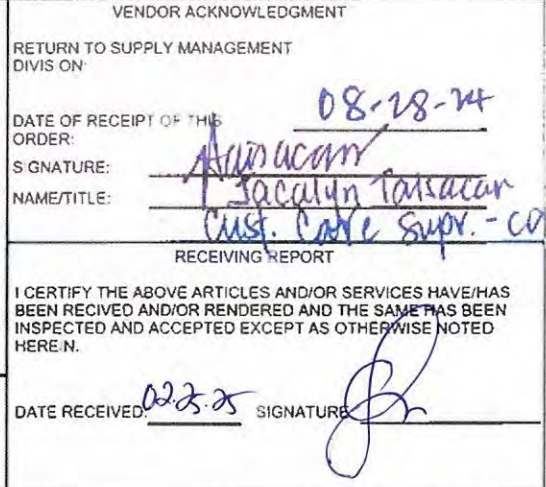 VENDOR ACKNOWLEDGMENT
RETURN TO SUPPLY MANAGEMENT
DIVIS ON:
DATE OF RECEIPT OF THIS 08-28-24
ORDER:
S GNATURE:
NAME/TITLE: Jacalyn
Cust. Care Supr. - CO
RECEIVING REPORT
I CERTIFY THE ABOVE ARTICLES AND/OR SERVICES HAVE/HAS
BEEN RECIVED AND/OR RENDERED AND THE SAME HAS BEEN
INSPECTED AND ACCEPTED EXCEPT AS OTHERWISE NOTED
HERE N.
DATE RECEIVED: 02.25.25 SIGNATURE